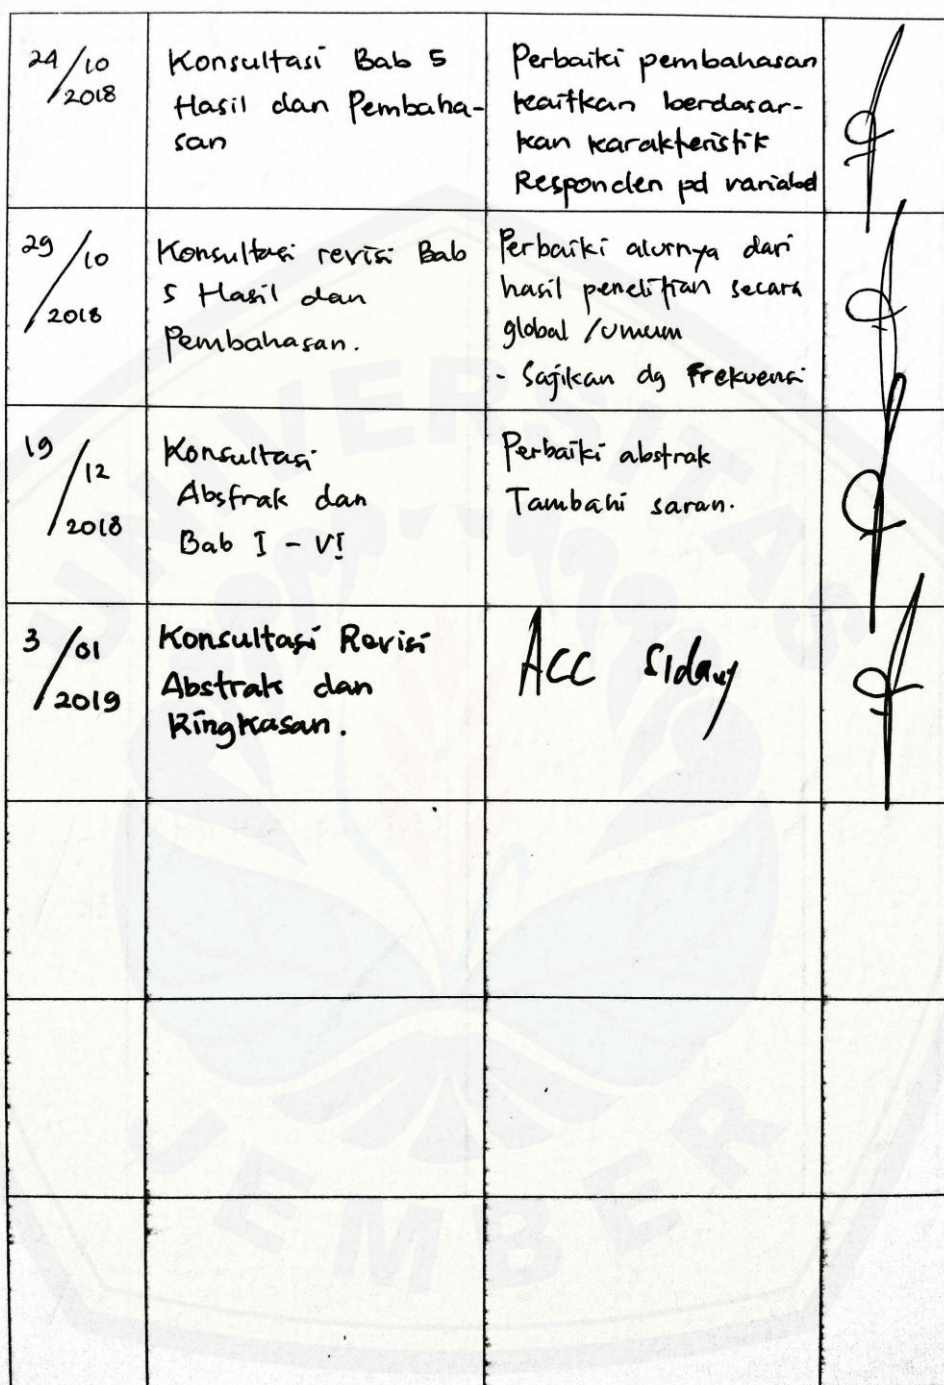 24/10 2018
Konsultasi Bab 5
Hasil dan Pembaha-
san
Perbaiki pembahasan
kaitkan berdasar-
kan karakteristik
Responden pd variabel
29/10 2018
Konsultasi revisi Bab
5 Hasil dan
Pembahasan.
Perbaiki alurnya dari
hasil penelitian secara
global / umum
- Sajikan dg Frekuensi
19/12 2018
Konsultasi
Abstrak dan
Bab I - VI
Perbaiki abstrak
Tambahi saran.
3/01 2019
Konsultasi Revisi
Abstrak dan
Ringkasan.
ACC Sidang
UNIVERSITAS
JEMBER